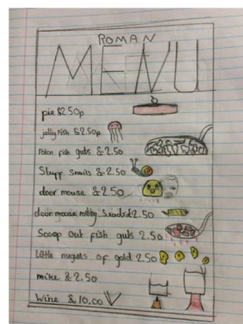 ROMAN
MENU
pie £2.50p
jelly fish £2.50p
fish guts £2.50
Snails £2.50
door mouse £2.50
door mouse 2.50
Scoop Out fish guts 2.50
Little nugets of gold 2.50
£2.50
Wine £10.00